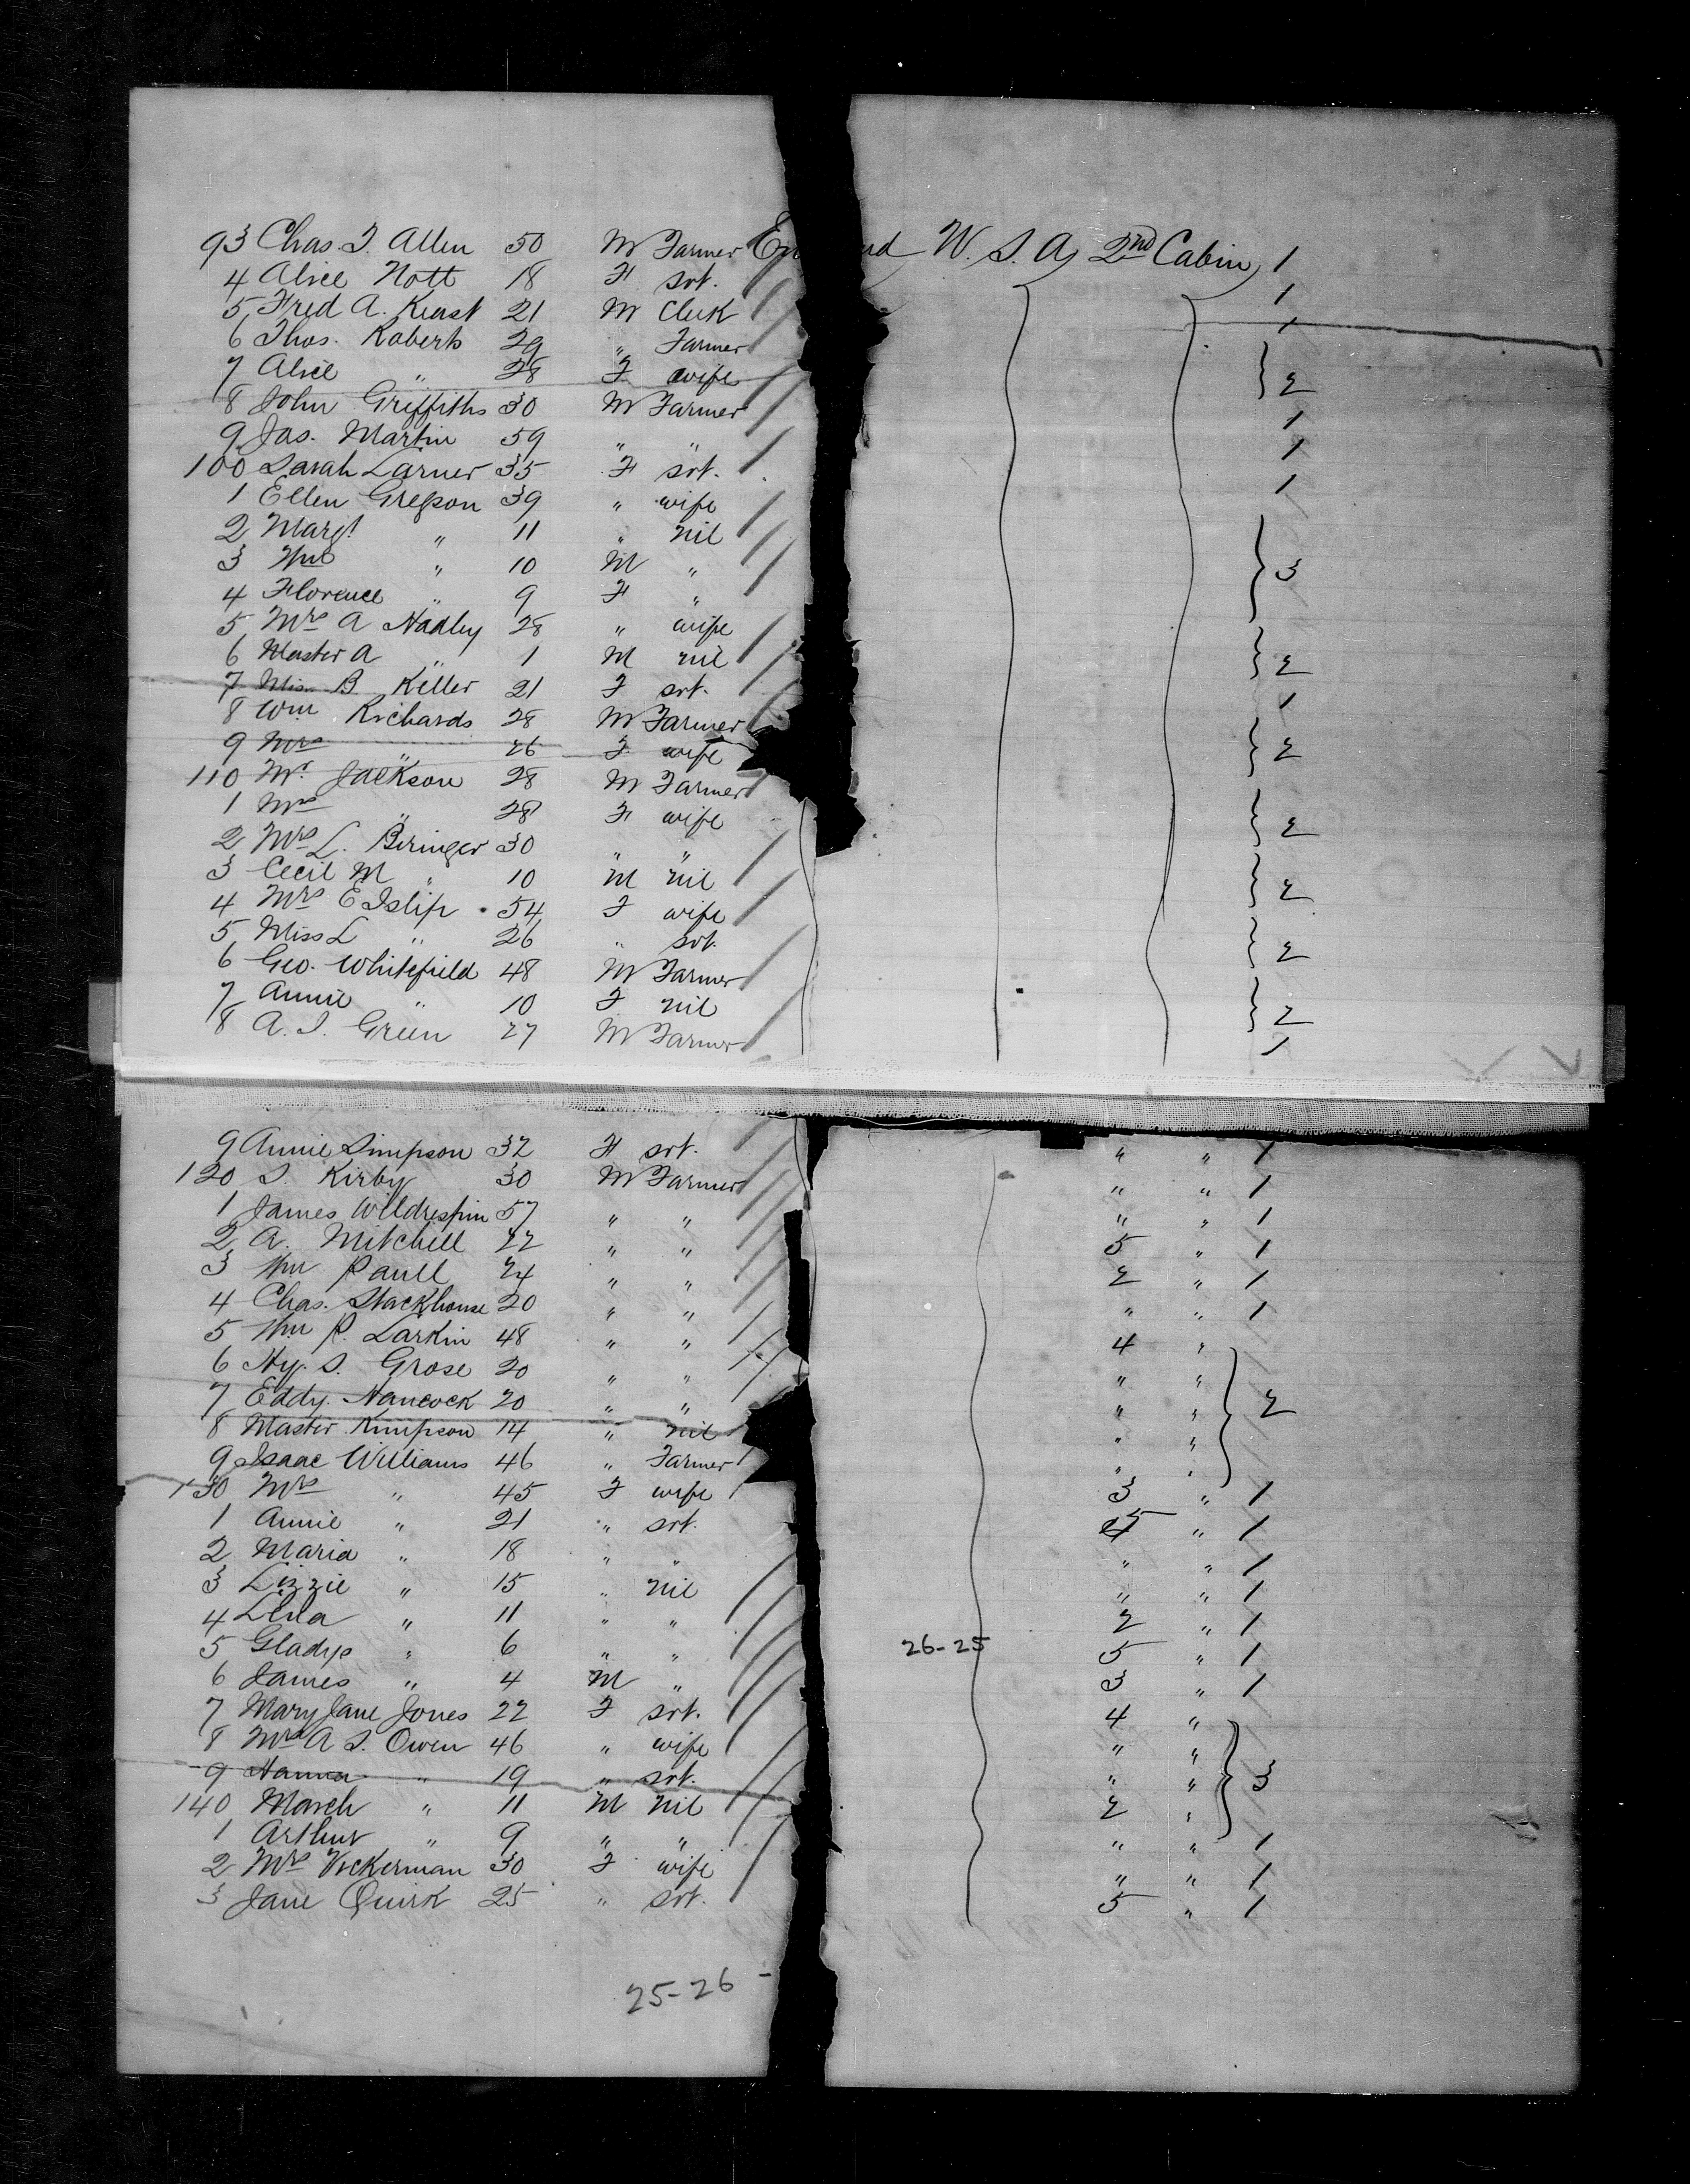 93 Chas. T. Allen 50 M Farmer England U.S.A 2nd Cabin 1
4 Alice Nott 18 F srt. 1
5 Fred A. Keast 21 M Clerk 1
6 Thos. Roberts 29 " Farmer
7 Alice " 28 F wife } 2
8 John Griffiths 30 M Farmer 1
9 Jas. Martin 59 " " 1
100 Sarah Larner 35 F srt. 1
1 Ellen Gregson 39 " wife
2 Margt " 11 " nil
3 Wm " 10 M " } 3
4 Florence " 9 F "
5 Mrs A Hadley 28 " wife
6 Master A " 1 M nil } 2
7 Miss B Keller 21 F srt. 1
8 Wm Richards 28 M Farmer
9 Mrs " 26 F wife } 2
110 Mr. Jackson 28 M Farmer
1 Mrs " 28 F wife } 2
2 Mrs L. Beringer 30 " "
3 Cecil M " 10 M nil } 2
4 Mrs E Islip 54 F wife
5 Miss L " 26 " srt. } 2
6 Geo. Whitefield 48 M Farmer
7 Annie " 10 F nil } 2
8 A. J. Green 27 M Farmer 1
9 Annie Simpson 32 F srt. " " 1
120 S. Kirby 30 M Farmer " " 1
1 James Willdrespin 57 " " " " 1
2 A. Mitchell 22 " " 5 " 1
3 Wm Paull 24 " " 2 " 1
4 Chas. Stackhouse 20 " " " " 1
5 Wm P. Larkin 48 " " 4 "
6 Hy. S. Grose 20 " " " "
7 Eddy. Hancock 20 " " " " } 2
8 Master Kimpson 14 " nil " "
9 Isaac Williams 46 " Farmer " "
130 Mrs " 45 F wife 3 " 1
1 Annie " 21 " srt. 5 " 1
2 Maria " 18 " " " " 1
3 Lizzie " 15 " nil " " 1
4 Lena " 11 " " 2 " 1
5 Gladys " 6 " " 26-25 5 " 1
6 James " 4 M " 3 " 1
7 Mary Jane Jones 22 F srt. 4 "
8 Mrs A S. Owen 46 " wife " "
9 Hanna " 19 " srt. " " } 3
140 March " 11 M nil 2 "
1 Arthur " 9 " " " " 1
2 Mrs Vickerman 30 F wife " " 1
3 Jane Quirk 25 " srt. 5 " 1
25-26 -